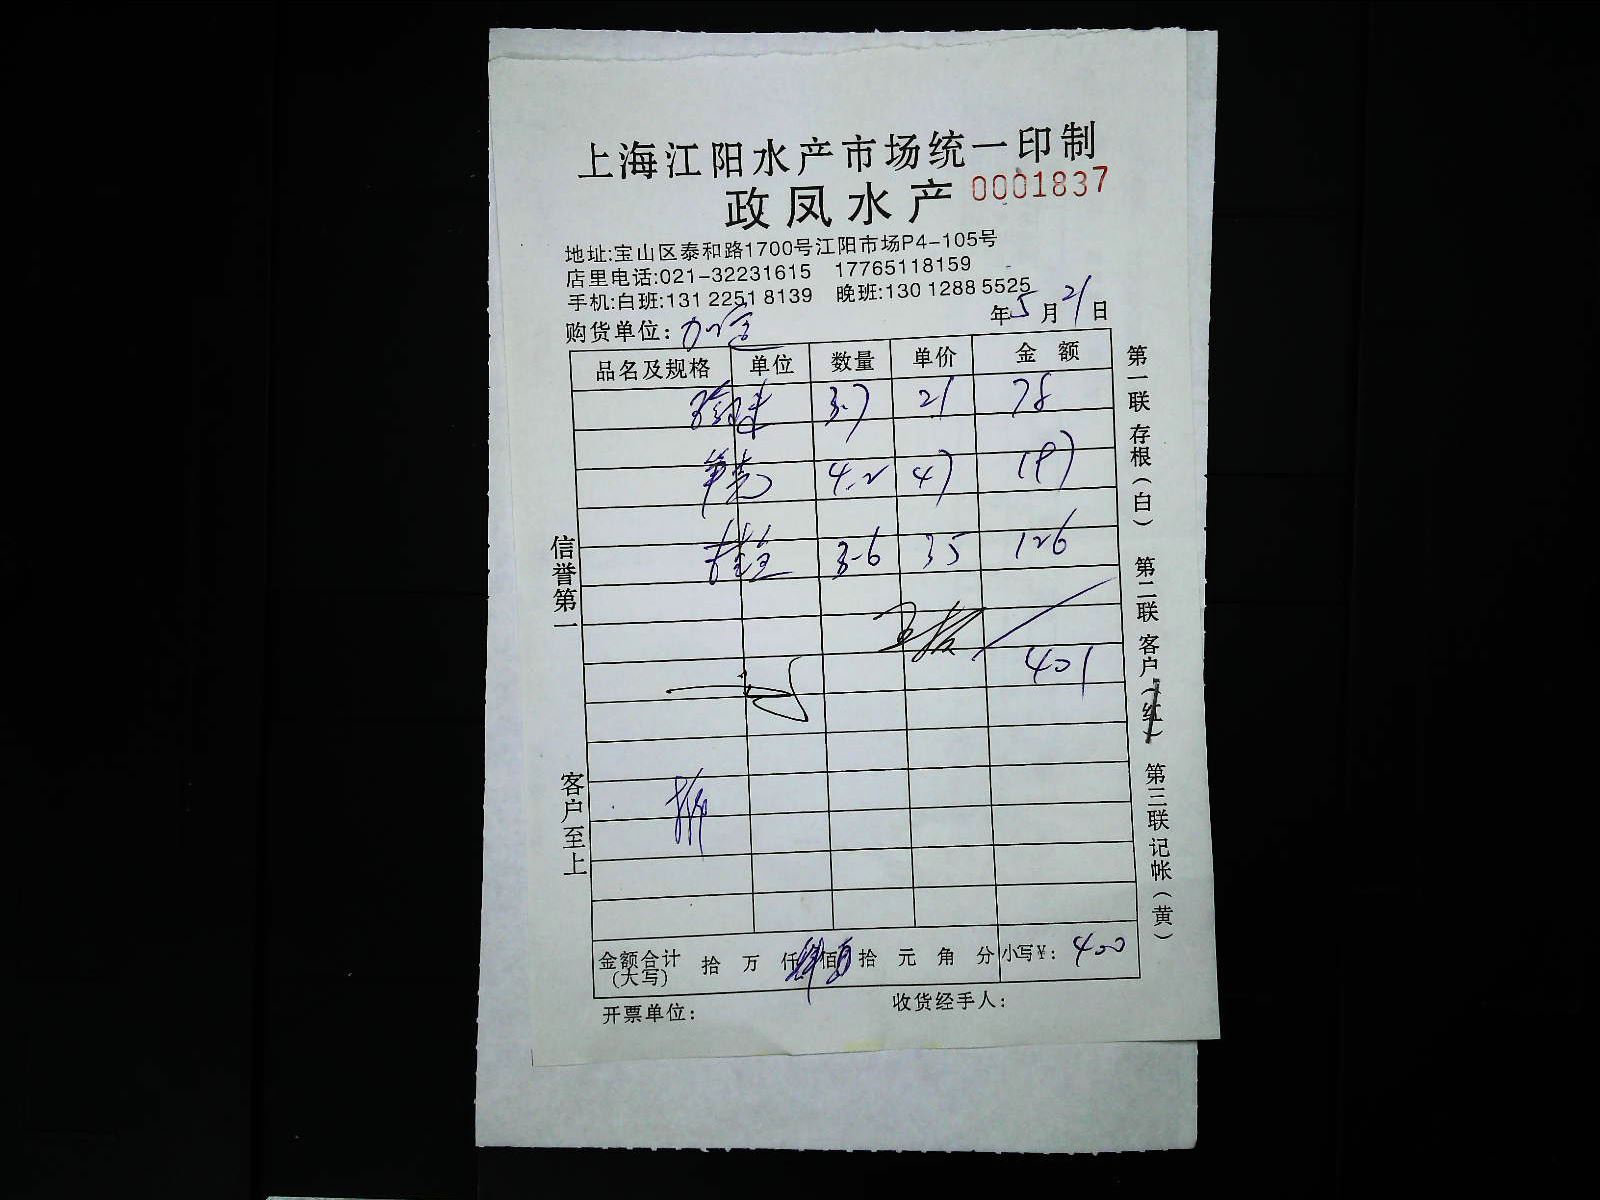 上海江阳水产市场统一印制
政凤水产 0001837
地址:宝山区泰和路1700号江阳市场P4-105号
店里电话:021-32231615 17765118159
手机:白班:131 2251 8139 晚班:130 1288 5525
年5月21日
购货单位:
品名及规格 单位 数量 单价 金额
3.7 21 78
4.2 47 197
3.6 35 126
401
金额合计(大写) 拾 万 仟 肆 佰 拾 元 角 分 小写¥: 400
开票单位: 收货经手人:
信誉第一
客户至上
第一联 存根(白) 第二联 客户(红) 第三联 记帐(黄)